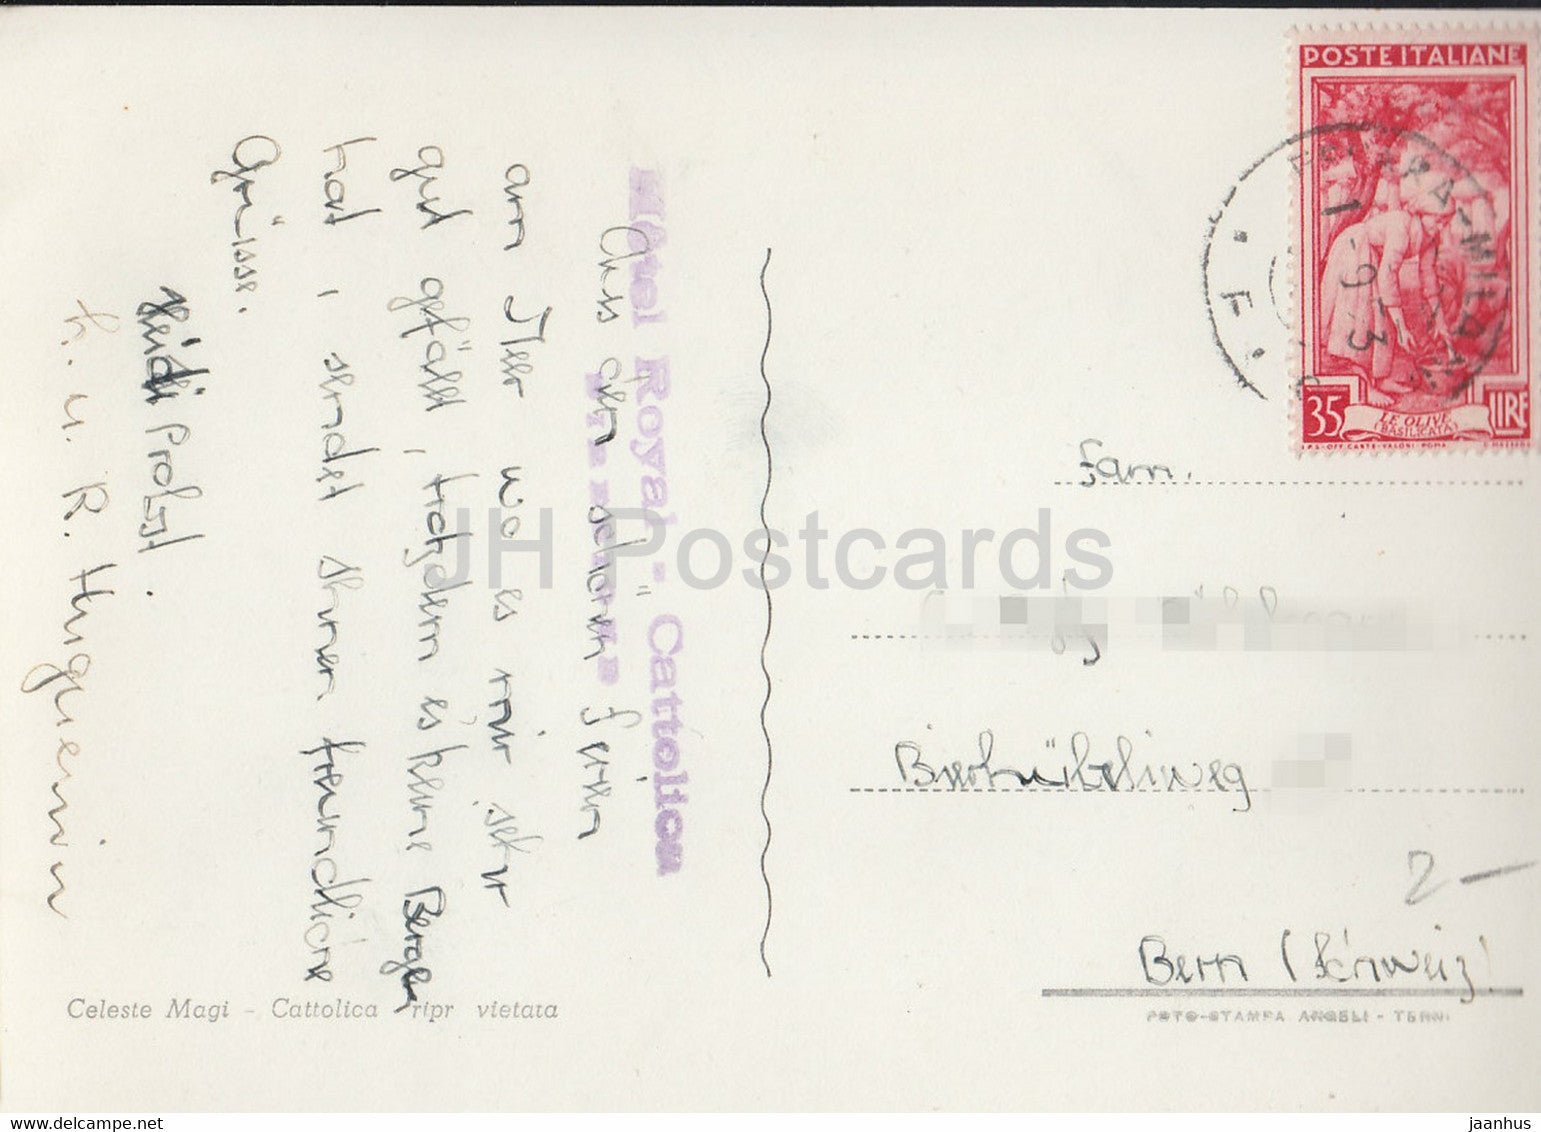 Hôtel Royal - Cattolica
Aus den schönen Ferien
am Meer wo es mir sehr
gut gefällt, trotzdem es keine Berge
hat, sendet Ihnen freundliche
Grüsse.
Heidi Probst.
H. u. R. Huguenin
POSTE ITALIANE
35 LIRE
LE OLIVE
(BASILICATA)
I.P.S.-OFF. CARTE-VALORI-ROMA
MILA
1-9-53
F
Fam.
Bierhübeliweg
2 —
Bern (Schweiz)
Celeste Magi - Cattolica ripr vietata
FOTO-STAMPA ANGELI - TERNI
JH Postcards
jaanhus © delcampe.net